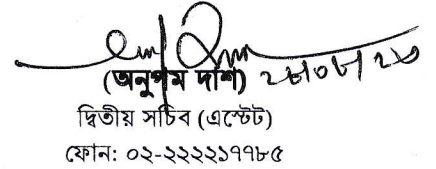 (অনুপম দাশ)
দ্বিতীয় সচিব (এস্টেট)
ফোন: ০২-২২২২১৭৭৮৫